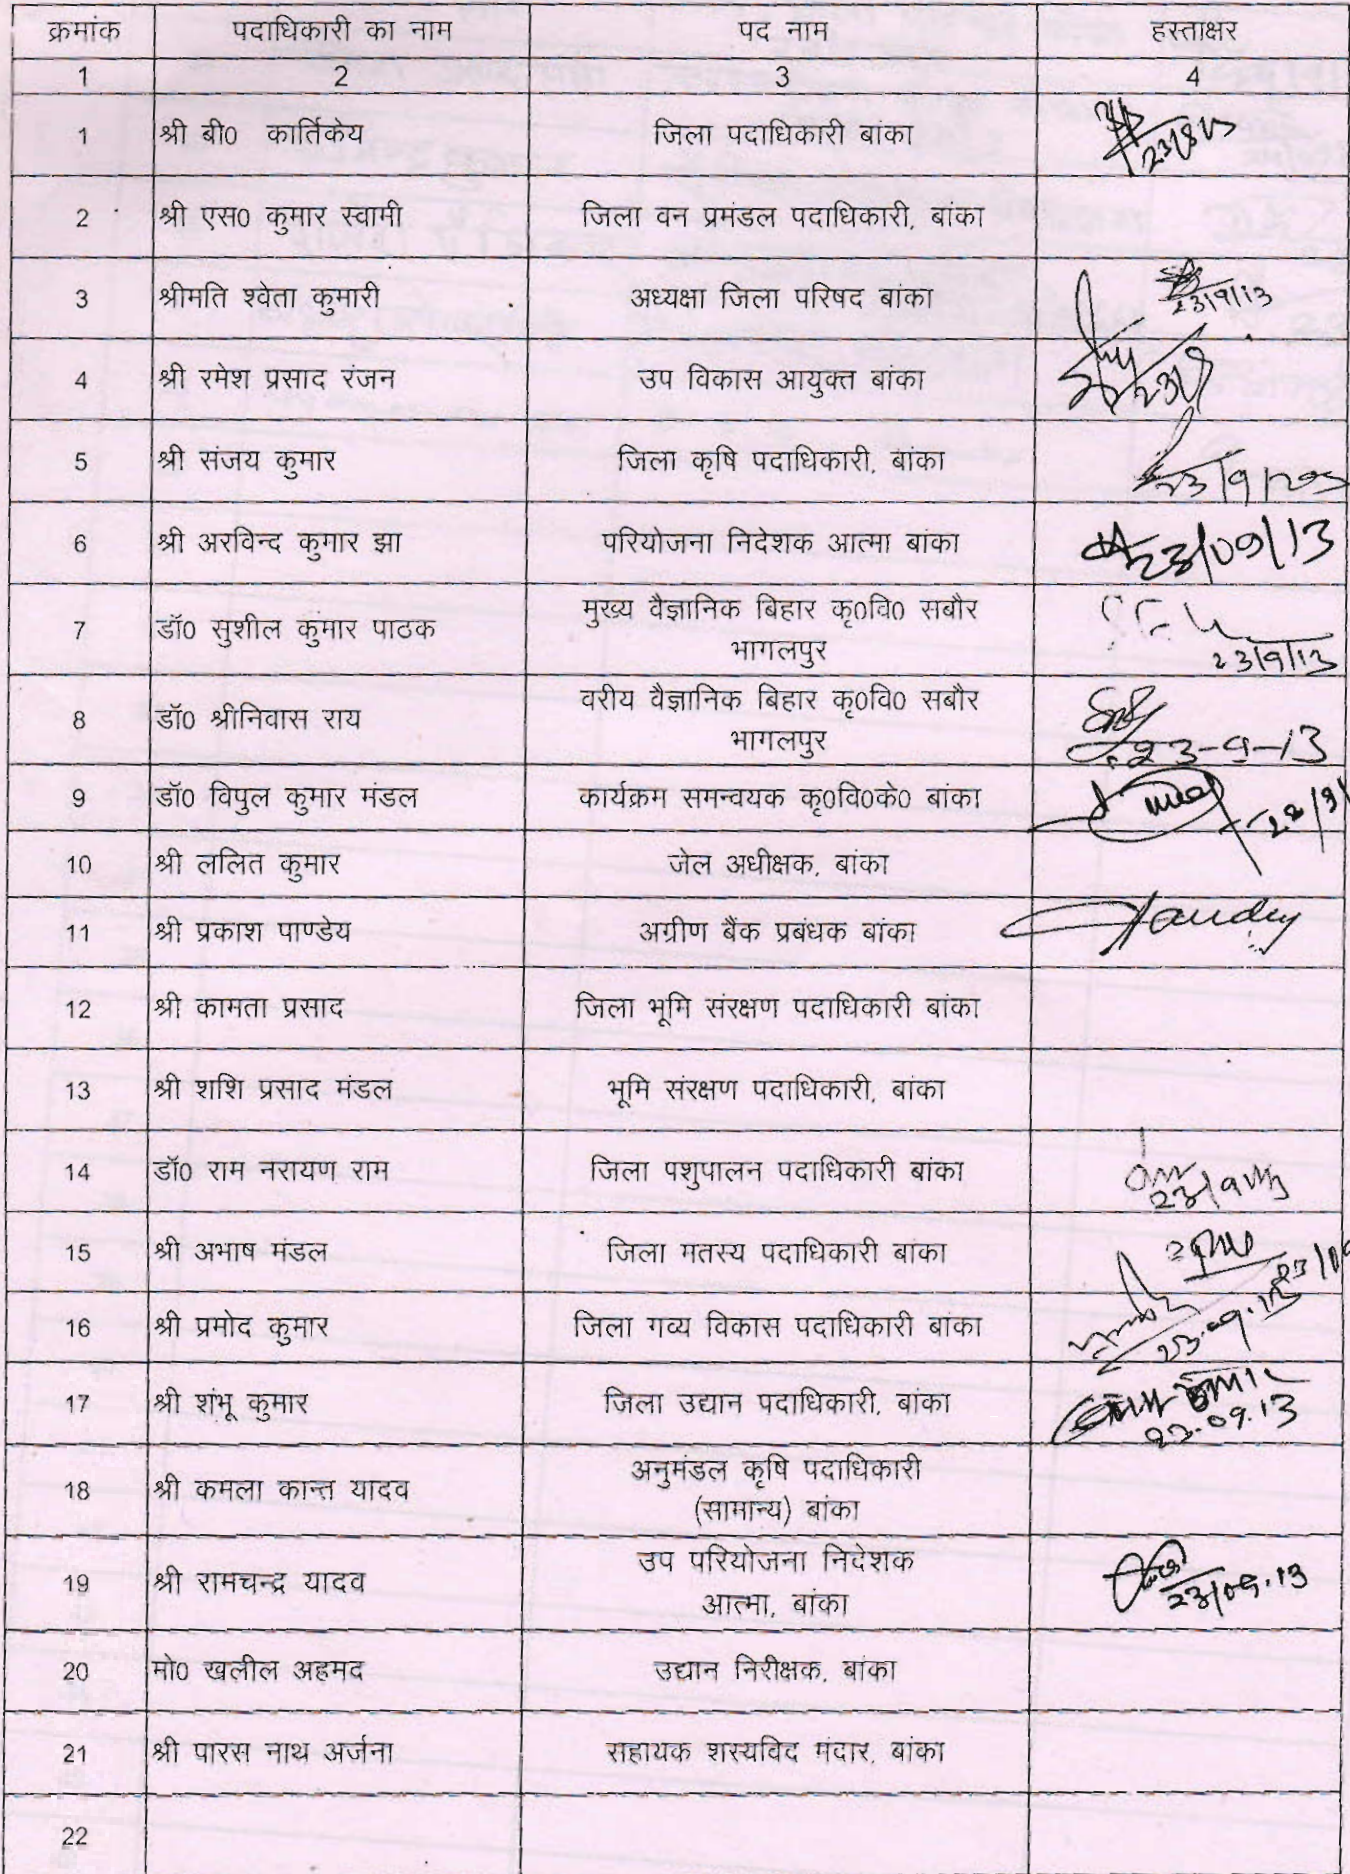 क्रमांक पदाधिकारी का नाम पद नाम हस्ताक्षर
1 2 3 4
1 श्री बी0 कार्तिकेय जिला पदाधिकारी बांका
2 श्री एस0 कुमार स्वामी जिला वन प्रमंडल पदाधिकारी, बांका
3 श्रीमति श्वेता कुमारी अध्यक्षा जिला परिषद बांका 23/9/13
4 श्री रमेश प्रसाद रंजन उप विकास आयुक्त बांका 23/9
5 श्री संजय कुमार जिला कृषि पदाधिकारी, बांका
6 श्री अरविन्द कुमार झा परियोजना निदेशक आत्मा बांका 23/09/13
7 डॉ0 सुशील कुमार पाठक मुख्य वैज्ञानिक बिहार कृ0वि0 सबौर
भागलपुर 23/9/13
8 डॉ0 श्रीनिवास राय वरीय वैज्ञानिक बिहार कृ0वि0 सबौर
भागलपुर 23-9-13
9 डॉ0 विपुल कुमार मंडल कार्यक्रम समन्वयक कृ0वि0के0 बांका
10 श्री ललित कुमार जेल अधीक्षक, बांका
11 श्री प्रकाश पाण्डेय अग्रीण बैंक प्रबंधक बांका
12 श्री कामता प्रसाद जिला भूमि संरक्षण पदाधिकारी बांका
13 श्री शशि प्रसाद मंडल भूमि संरक्षण पदाधिकारी, बांका
14 डॉ0 राम नरायण राम जिला पशुपालन पदाधिकारी बांका
15 श्री अभाष मंडल जिला मतस्य पदाधिकारी बांका
16 श्री प्रमोद कुमार जिला गव्य विकास पदाधिकारी बांका 23.09.13
17 श्री शंभू कुमार जिला उद्यान पदाधिकारी, बांका
18 श्री कमला कान्त यादव अनुमंडल कृषि पदाधिकारी
(सामान्य) बांका
19 श्री रामचन्द्र यादव उप परियोजना निदेशक
आत्मा, बांका 23/09.13
20 मो0 खलील अहमद उद्यान निरीक्षक, बांका
21 श्री पारस नाथ अर्जना सहायक शस्यविद मंदार, बांका
22